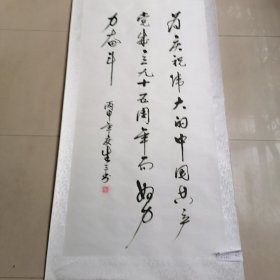 为庆祝伟大的中国共产
党成立九十五周年而努
力奋斗
丙申年夏生书